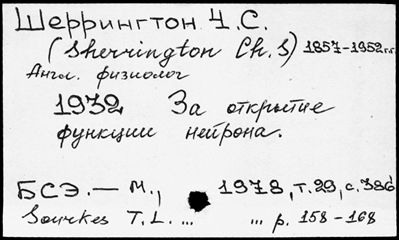 Шеррингтон Ч.С.
(Sherrington Ch. S) 1857-1952 г.г.
Англ. физиолог
1932 За открытие
функции нейрона.
БСЭ. — М., 1978, т. 29, с. 386
Sourkes T. L. ... ... p. 158-168